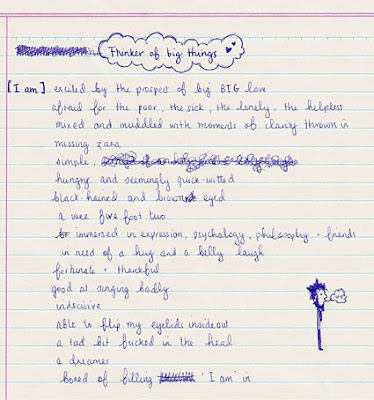 Thinker of big things
[I am] excited by the prospect of big BIG love
afraid for the poor, the sick, the lonely, the helpless
mixed and muddled with moments of clarity thrown in
missing zara
simple,
hungry and seemingly quick-witted
black-haired and brown eyed
a wee five foot two
immersed in expression, psychology, philosophy + friends
in need of a hug and a belly laugh
fortunate + thankful
good at singing badly
indecisive
able to flip my eyelids insideout
a tad bit fucked in the head
a dreamer
bored of filling 'I am' in